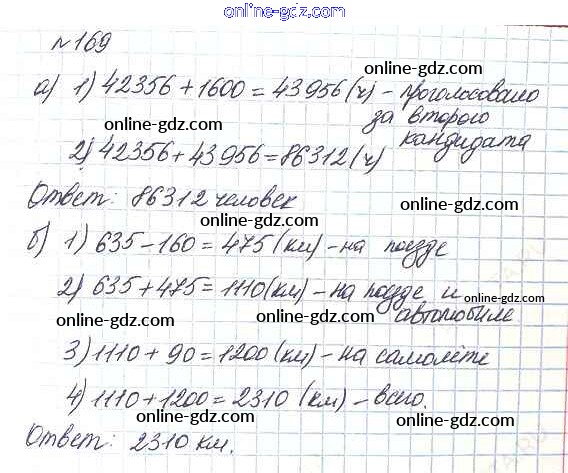 online-gdz.com
№169
а) 1) 42356 + 1600 = 43956 (ч) - проголосовано
online-gdz.com
за второго
online-gdz.com
кандидата
2) 42356 + 43956 = 86312 (ч)
online-gdz.com
Ответ: 86312 человек
online-gdz.com
online-gdz.com
б) 1) 635 - 160 = 475 (км) - на поезде
online-gdz.com
2) 635 + 475 = 1110 (км) - на поезде и
online-gdz.com
автомобиле
online-gdz.com
online-gdz.com
3) 1110 + 90 = 1200 (км) - на самолёте
online-gdz.com
4) 1110 + 1200 = 2310 (км) - всего.
online-gdz.com
online-gdz.com
Ответ: 2310 км.
online-gdz.com